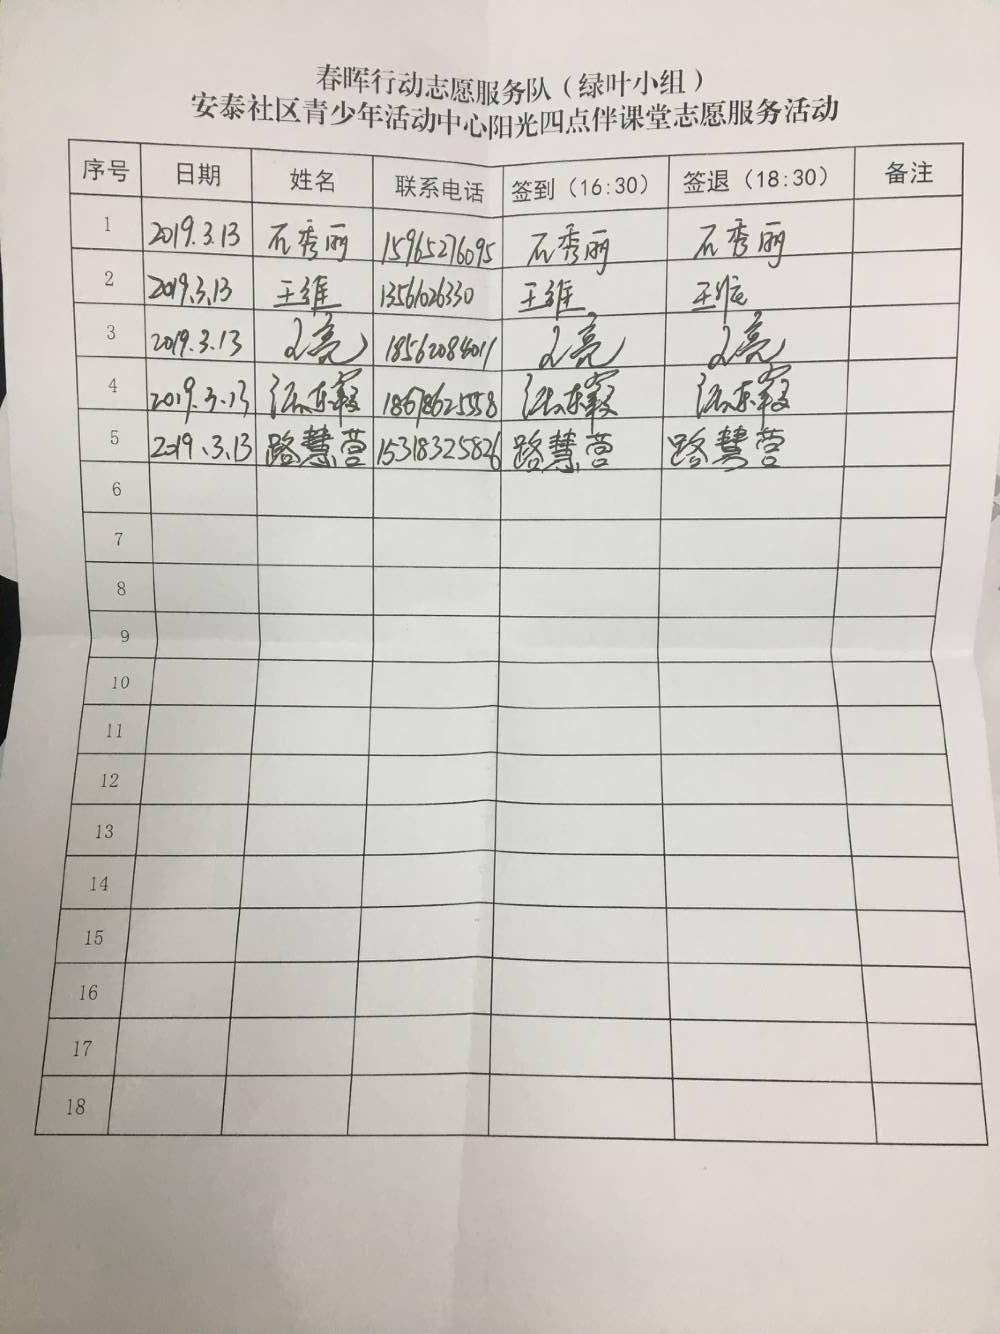 春晖行动志愿服务队（绿叶小组）
安泰社区青少年活动中心阳光四点伴课堂志愿服务活动
序号 日期 姓名 联系电话 签到（16:30） 签退（18:30） 备注
1 2019.3.13 石秀丽 15965276095 石秀丽 石秀丽
2 2019.3.13 王维 王维 王维
3 2019.3.13 18562084011
4 2019.3.13 18678625558
5 2019.3.13 路慧营 15318325826 路慧营 路慧营
6
7
8
9
10
11
12
13
14
15
16
17
18